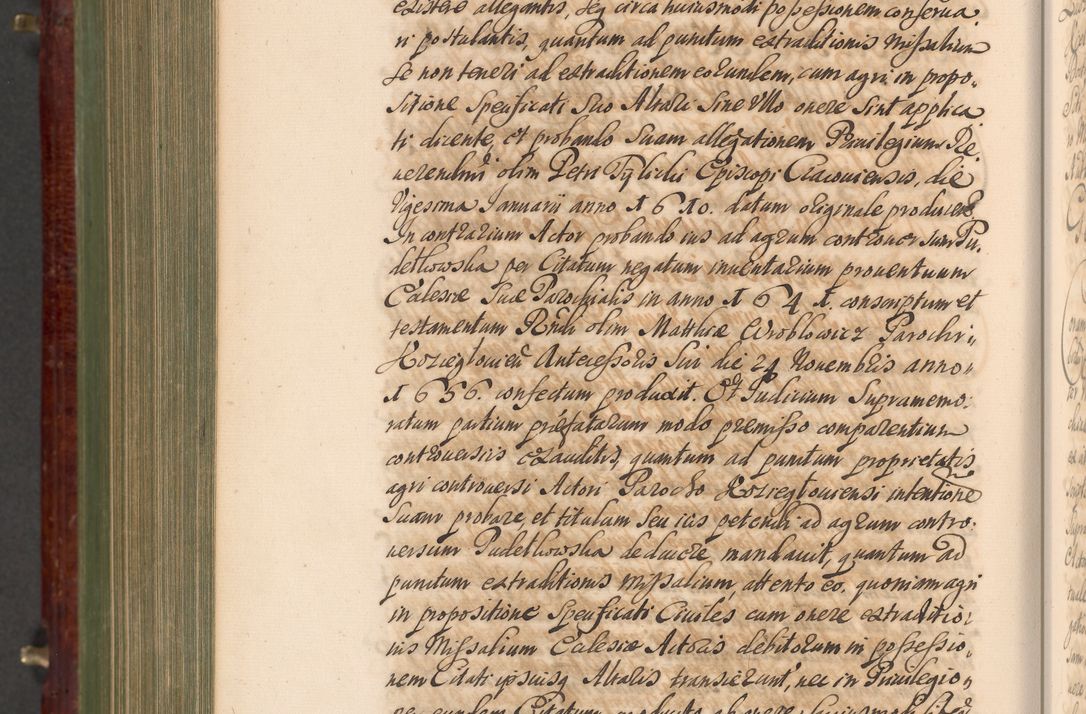 existere allegantis, seq circa huiusmodi possessionem conserua
ri postulantis, quantum ad punctum extraditionis Missalium
se non teneri ad extraditionem eorundem, cum agri in propo,
sitione specificati suo Altari sine ullo onere sint applica
ti dicente, et probando suam allegationem Priuilegium Re,
uerendmi olim Petri Tylicki Episcopi Cracouiensis, die
Vigesima Januarii anno 1610. datum originale producet
In contrarium Actor probando ius ad agrum controuersum Pu,
delkowska per Citatum negatum inuentarium prouentuum
Ecclesiæ suæ Parochialis in anno 1641. conscriptum et
testamentum Rndi olim Matthiæ Wroblowicz Parochi,
Kozieglouien Antecessoris sui die 24 Nouembris anno,
1656. confectum produxit. Et Judicium supramemo:
ratum partium præfatarum modo premisso comparentium
controuersiis exauditis, quantum ad punctum proprietatis
agri controuersi Actori Parocho Kozieglouiensi intentione
suam probare, et titulum seu ius petendi ad agrum contro:
uersum Pudelkowska deducere, mandauit, quantum ad
punctum extraditionis missalium, attento eo, quoniam agri
in propositione specificati Ciuiles cum onere extraditio:
nis Missalium Ecclesiæ Actoris debitorum in possessio,
nem Citati ipsiusq Altaris transierunt, nec in Priuilegio,